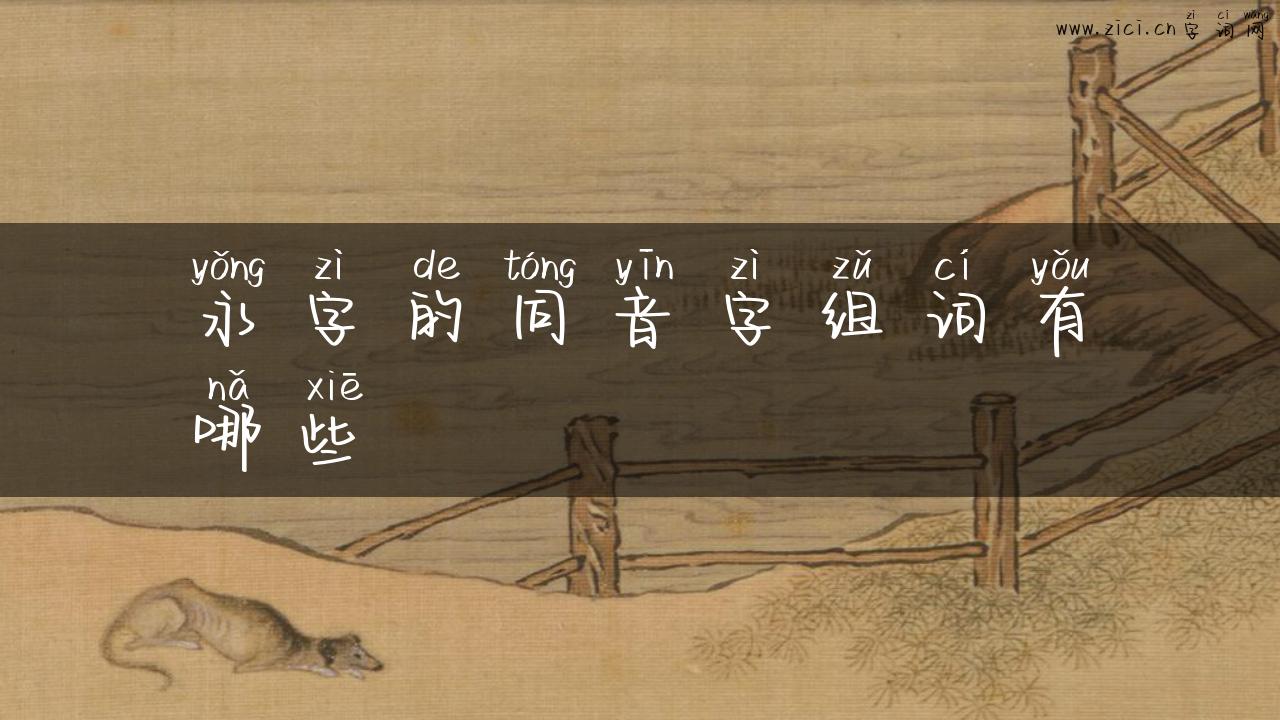 zì cí wǎng
www.zici.cn字词网
yǒng zì de tóng yīn zì zǔ cí yǒu
永字的同音字组词有
nǎ xiē
哪些